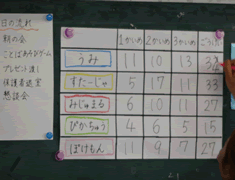 日の流れ
朝の会
ことばあそびゲーム
プレゼント渡し
保護者
懇談会
1かいめ 2かいめ 3かいめ ごうけい
うみ 11 10 13
すたーじゅ 5 17 11 33
みじゅまる 6 10 11 27
ぴかちゅう 4 6 5 15
ぽけもん 11 9 7 27